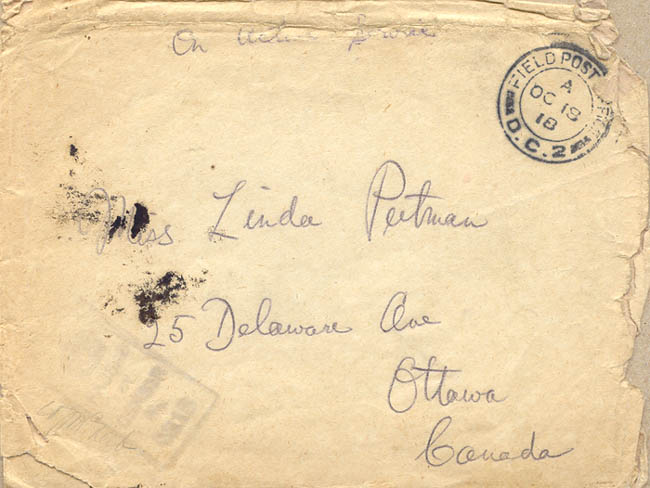 On Active Service
FIELD POST OFFICE
A
OC 18
18
D.C.2
Miss Linda Peitman
25 Delaware Ave
Ottawa
Canada